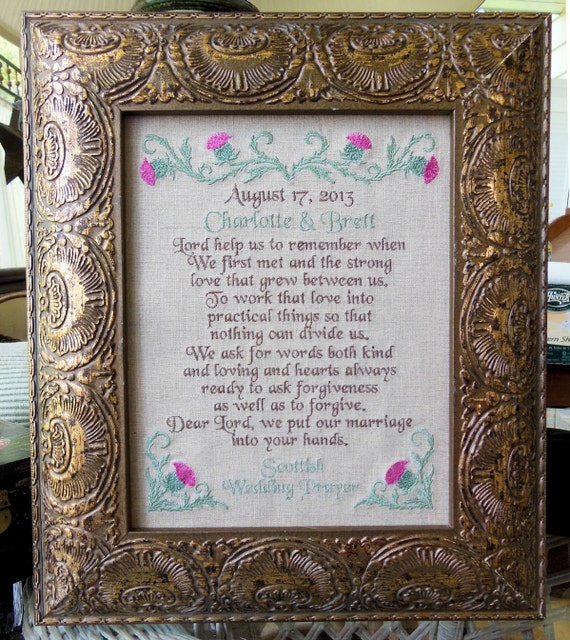 August 17, 2013
Charlotte & Brett
Lord help us to remember when
We first met and the strong
love that grew between us.
To work that love into
practical things so that
nothing can divide us.
We ask for words both kind
and loving and hearts always
ready to ask forgiveness
as well as to forgive.
Dear Lord, we put our marriage
into your hands.
Scottish
Wedding Prayer